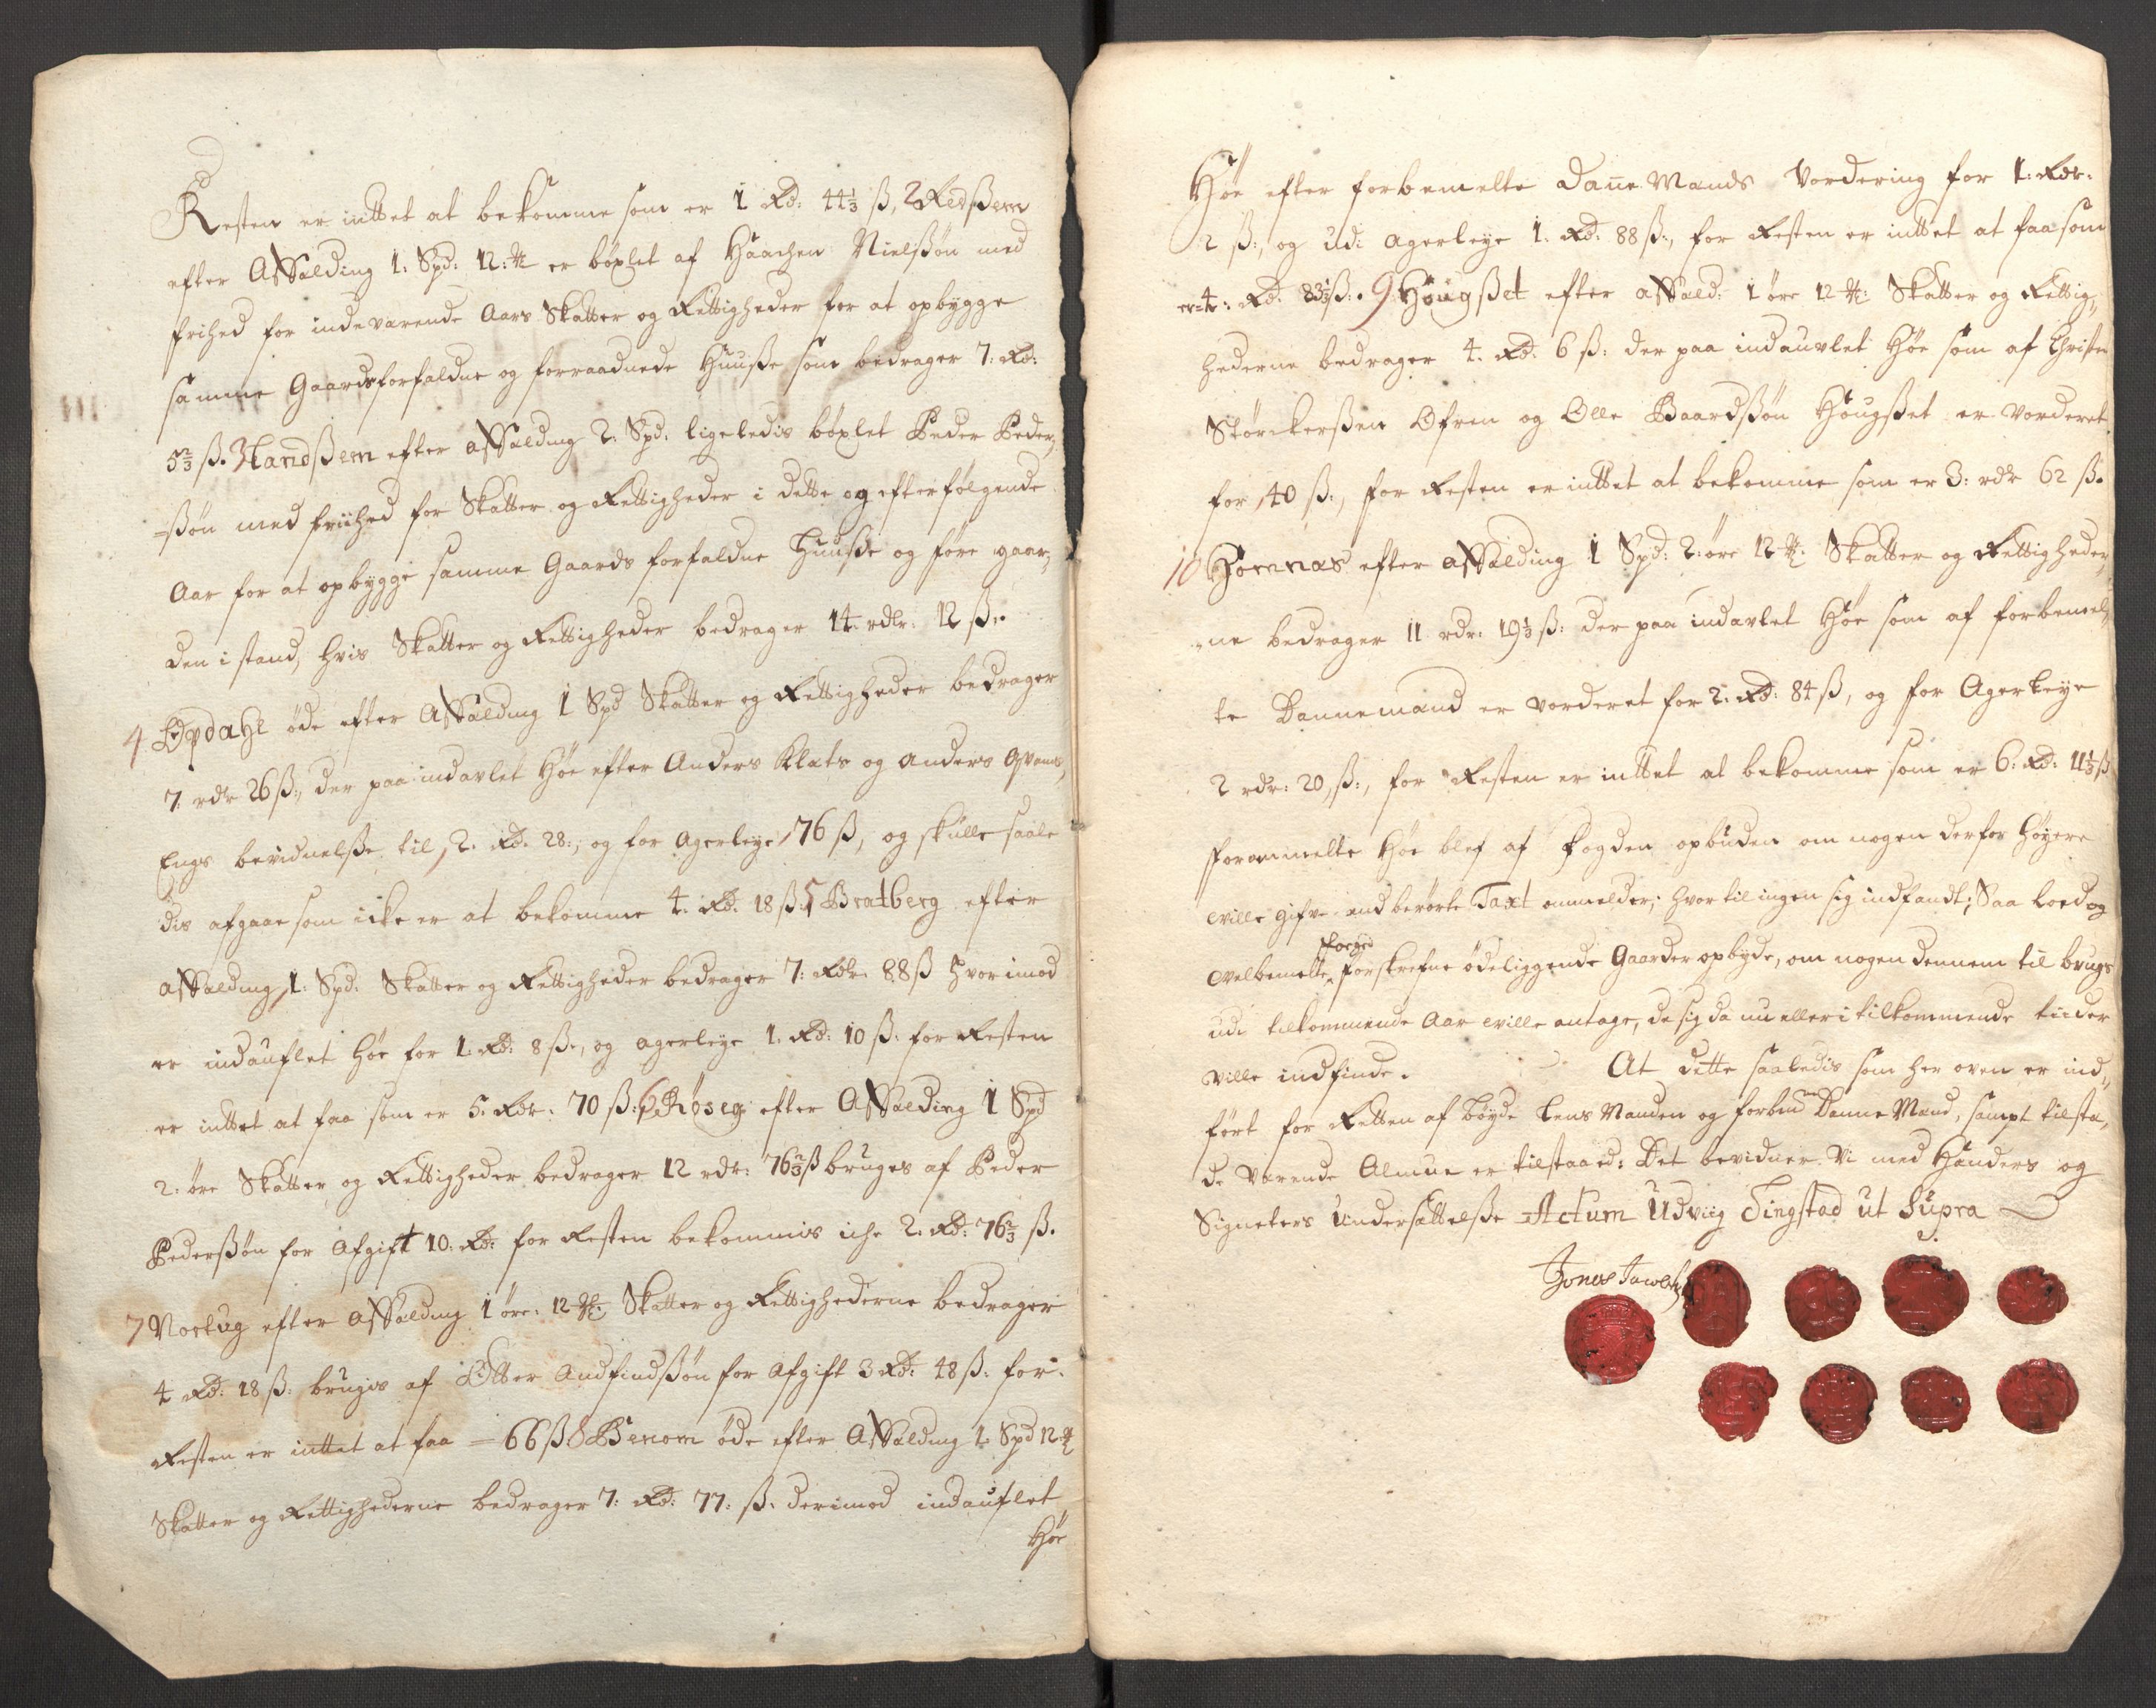 Resten er inttet at bekomme som er 1 Rd: 44⅓ ß, 2 Redßem
efter Affælding 1: Spd: 12: ℔ er böxlet af Haachen Nielßøn med
frihed for indeværende Aars Skatter og Rettigheder for at opbygge
samme Gaards forfaldne og forraadnede Huuße som bedrager 7: Rd:
5⅔ ß. 3 Handßem efter affælding 2: Spd: ligeledis böxlet Peder Peder,
ßøn med friihed for Skatter og Rettigheder i dette og efterfølgende
Aar for at opbygge samme Gaards forfaldne Huuße og føre gaar,
den i stand, hvis Skatter og Rettigheder bedrager 14: rdlr: 12 ß:.
4 Opdahl øde efter Affælding 1 Spd Skatter og Rettigheder bedrager
7: rdr 26 ß:, der paa indavlet Høe efter Anders Klets og Anders Qvams,
Engs bevidnelße til, 2. Rd. 28:, og for agerleye, 76 ß, og skulle saale
dis afgaae som icke er at bekomme 4. Rd. 18 ß. 5 Bratberg efter
affælding, 1: Spd. Skatter og Rettigheder bedrager 7: Rdr: 88 ß hvorimod
er indauflet høe for 1. Rd: 8 ß:, og agerleye 1. Rd: 10 ß: for Resten
er inttet at faa som er 5. Rdr: 70 ß: 6 Røseg efter Affælding 1 Spd
2: øre Skatter og Rettigheder bedrager 12 rdr: 76⅔ ß bruges af Peder
Pederßøn for Afgift 10. Rd: for Resten bekommis iche 2. Rd: 76⅔ ß.
7 Voelug efter affælding 1 øre: 12 ℔: Skatter og Rettighederne bedrager
4 Rd: 18 ß: brugis af Otter Andfindßøn for Afgift 3 Rd: 48 ß: for
Resten er inttet at faa = 66 ß 8 Benom øde efter Affælding 1. Spd 12 ℔
Skatter og Rettighederne bedrager 7: Rd: 77: ß. derimod indauflet
Høe
Høe efter forbemelte Danne Mands Vordering for 1: Rdr:
2 ß:, og udi agerleye 1. Rd: 88 ß:, for Resten er inttet at faa som
er 4: Rd: 83⅓ ß:. 9 Høugßet efter affæld: 1 øre 12 ℔: Skatter og Rettig,
hederne bedrager 4. Rd: 6 ß: der paa indauvlet Høe som af Christen
Størckerßen Øfren og Olle Baardßøn Høugßet er vorderet
for, 40 ß:, for Resten er inttet at bekomme som er 3: rdr 62 ß.
10 Hømnæs efter affælding 1 Spd: 2: øre 12 ℔. Skatter og Rettigheder,
ne bedrager 11 rdr: 19⅓ ß: der paa indavlet Høe som af forbemel,
te Dannemænd er vorderet for 2. Rd: 84 ß, og for Agerleye
2 rdr: 20, ß:, for Resten er inttet at bekomme som er 6: Rd: 11⅓ ß
forommelte Høe blef af fogden opbuden om nogen derfor høyere
wille gifve end berørte Taxt ommelder; hvor til ingen sig indfandt; Saa loed og
welbemelte Foeged forskrefne ødeliggende Gaarder opbyde, om nogen dennem til brugs
udi tilkommende Aar wille antage, de sig da nu eller i tilkommende tiider
ville indfinde. At dette saaledis som her oven er ind,
ført for Retten af bøyde Lens Manden og forben Danne Mænd, sampt tilstæ,
de værende Almue er tilstaaed: Det bevidner Vi med Hænders og
Signeters Undersættelße Actum Udviig Tingstad ut Supra
Jonas Jacobs